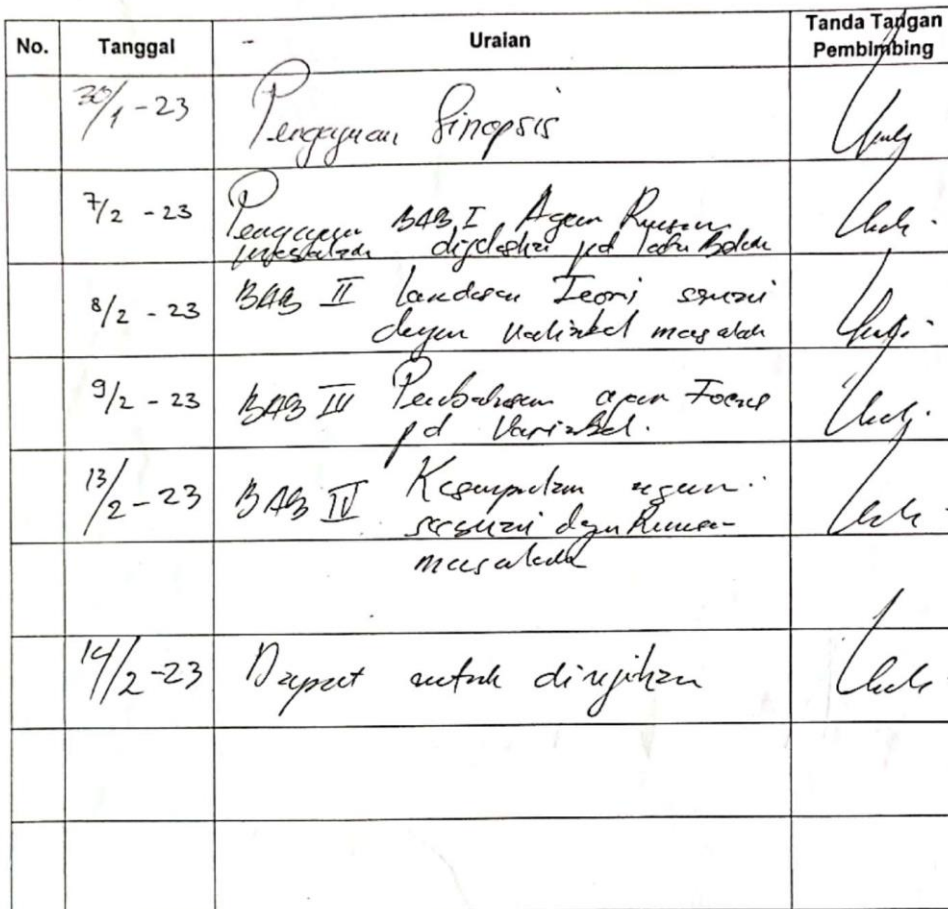 No. Tanggal Uraian Tanda Tangan
Pembimbing
30/1 - 23 Pengajuan Sinopsis
7/2 - 23 Pengajuan BAB I Agar Rumusan
permasalahan dijelaskan pd Latar Belakang
8/2 - 23 BAB II Landasan Teori sesuai
dengan Variabel masalah
9/2 - 23 BAB III Pembahasan agar Focus
pd Variabel.
13/2 - 23 BAB IV Kesimpulan agar
sesuai dgn Rumusan
masalah
14/2 - 23 Dapat untuk diujikan